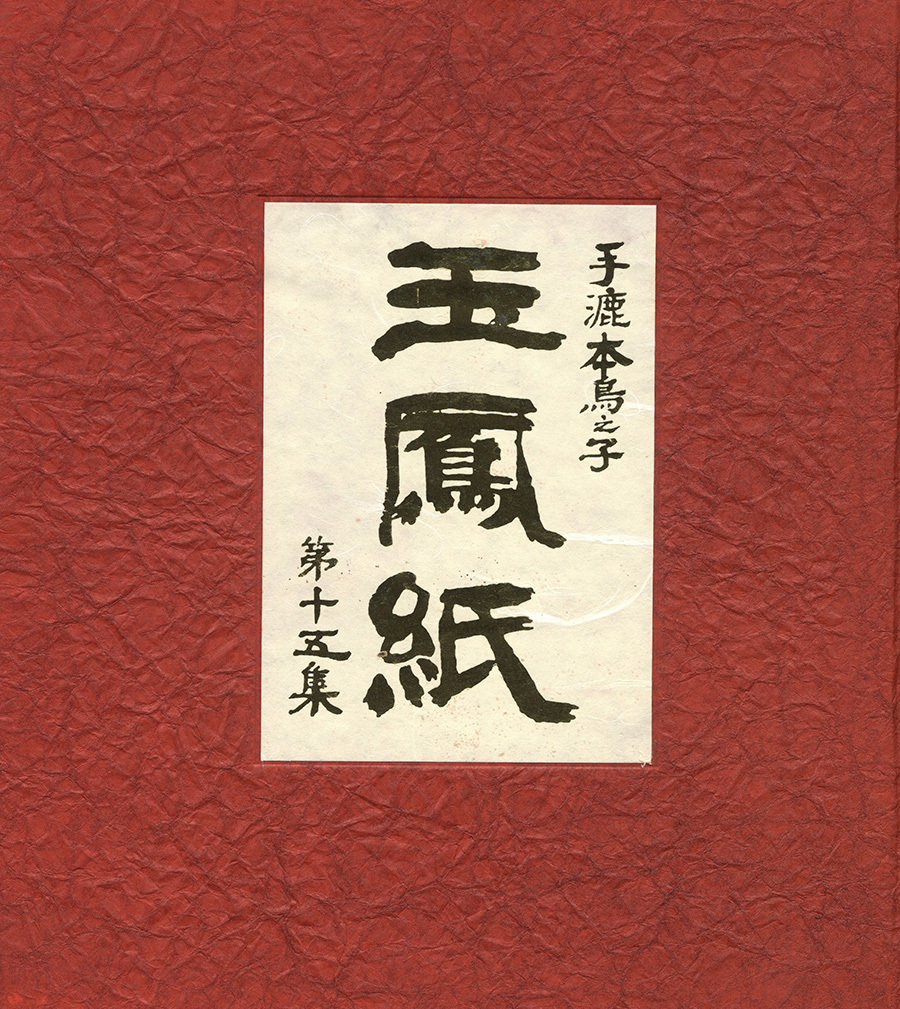 手漉本鳥之子
玉鳳紙
第十五集